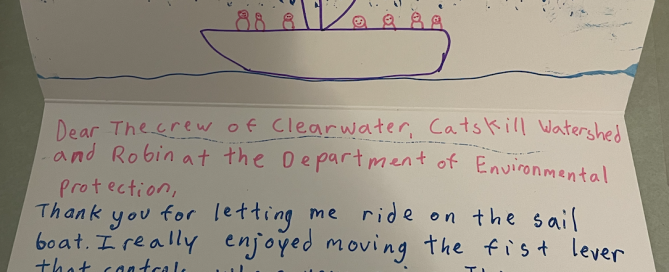 Dear The crew of Clearwater, Catskill Watershed
and Robin at the Department of Environmental
Protection,
Thank you for letting me ride on the sail
boat. I really enjoyed moving the fist lever
that controls